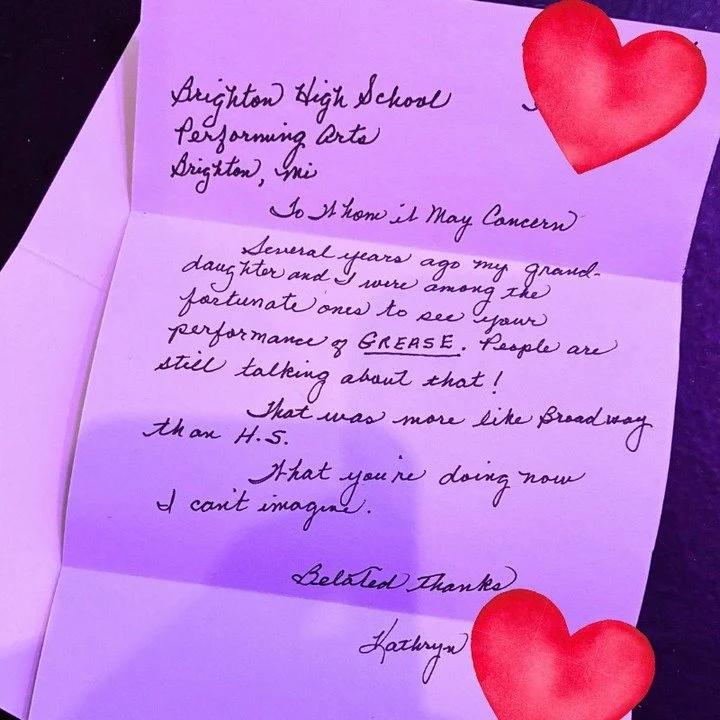 Brighton High School
Performing Arts
Brighton, Mi
To Whom it May Concern
Several years ago my grand-
daughter and I were among the
fortunate ones to see your
performance of GREASE. People are
still talking about that!
That was more like Broadway
than H.S.
What you're doing now
I can't imagine.
Belated Thanks
Kathryn